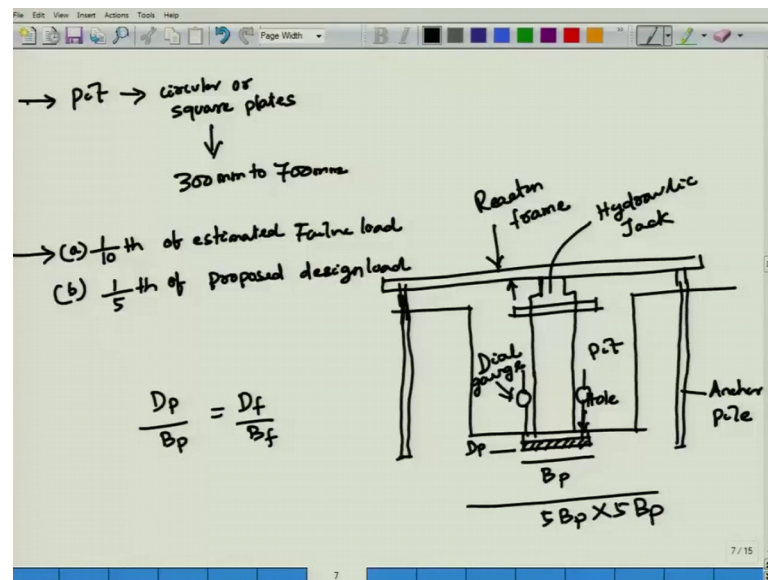 File Edit View Insert Actions Tools Help
Page Width
B I
→ Pit → circular or
square plates
↓
300 mm to 700 mm
→ (a) 1/10 th of estimated Failure load
(b) 1/5 th of proposed design load
Dp/Bp = Df/Bf
Reaction
frame
Hydraulic
Jack
Dial
gauge
Pit
Hole
Anchor
pile
Dp
Bp
5Bp X 5Bp
7/15
7